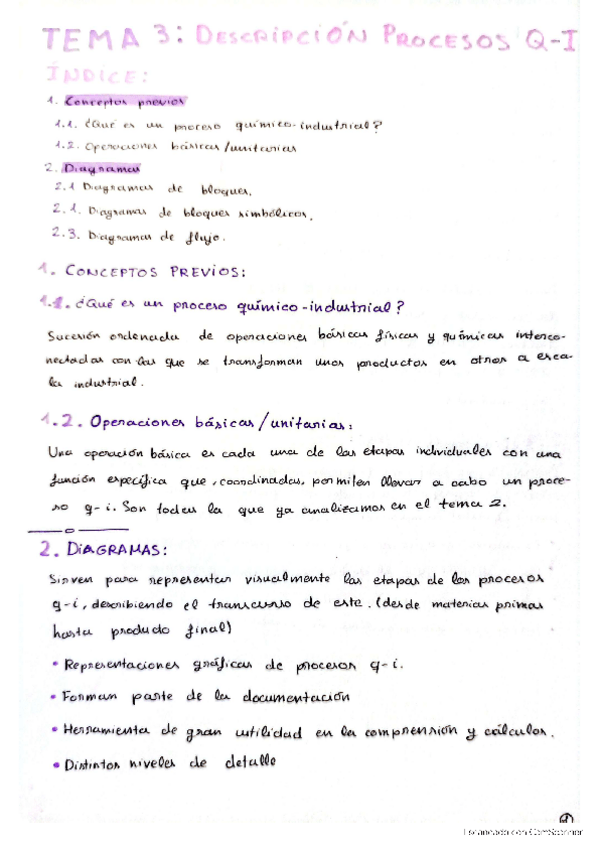 TEMA 3: DESCRIPCIÓN PROCESOS Q-I
ÍNDICE:
1. Conceptos previos
1.1. ¿Qué es un proceso químico-industrial?
1.2. Operaciones básicas/unitarias
2. Diagramas
2.1 Diagramas de bloques.
2.1. Diagramas de bloques simbólicos.
2.3. Diagramas de flujo.
1. CONCEPTOS PREVIOS:
1.1. ¿Qué es un proceso químico-industrial?
Sucesión ordenada de operaciones básicas físicas y químicas interco-
nectadas con las que se transforman unos productos en otros a esca-
la industrial.
1.2. Operaciones básicas/unitarias:
Una operación básica es cada una de las etapas individuales con una
función específica que, coordinadas, permiten llevar a cabo un proce-
so q-i. Son todas la que ya analizamos en el tema 2.
2. DIAGRAMAS:
Sirven para representar visualmente las etapas de los procesos
q-i, describiendo el transcurso de este. (desde materias primas
hasta producto final)
• Representaciones gráficas de procesos q-i.
• Forman parte de la documentación
• Herramienta de gran utilidad en la comprensión y cálculos.
• Distintos niveles de detalle
1
Escaneado con CamScanner